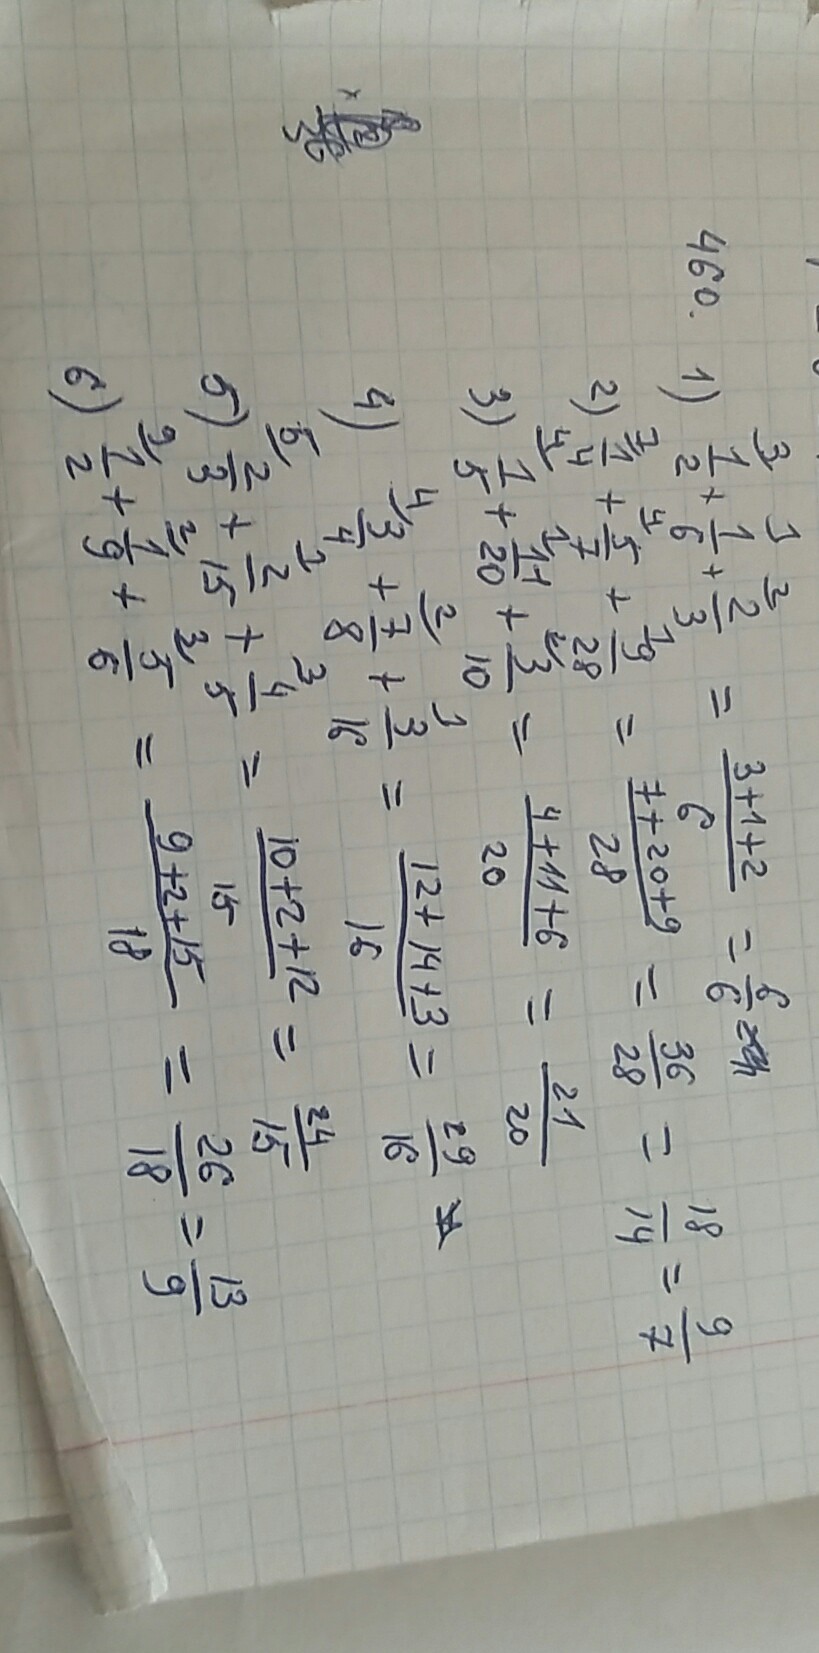 460. 1) 1/2 ³ + 1/6 ¹ + 2/3 ² = (3+1+2)/6 = 6/6
2) 1/4 ⁷ + 5/7 ⁴ + 9/28 ¹ = (7+20+9)/28 = 36/28 = 18/14 = 9/7
3) 1/5 ⁴ + 11/20 ¹ + 3/10 ² = (4+11+6)/20 = 21/20
4) 3/4 ⁴ + 7/8 ² + 3/16 ¹ = (12+14+3)/16 = 29/16
5) 2/3 ⁵ + 2/15 ¹ + 4/5 ³ = (10+2+12)/15 = 24/15
6) 1/2 ⁹ + 1/9 ² + 5/6 ³ = (9+2+15)/18 = 26/18 = 13/9